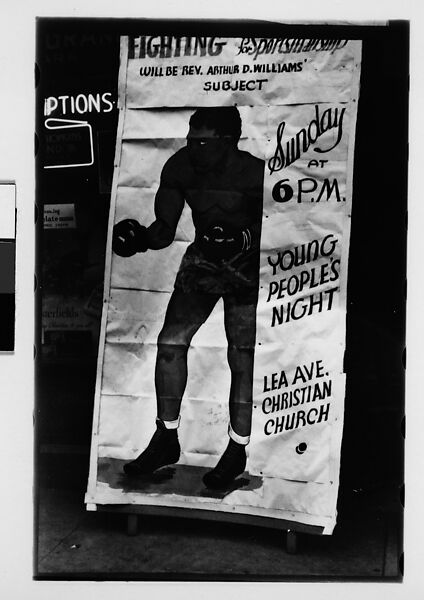 FIGHTING for Sportsmanship
WILL BE REV. ARTHUR D. WILLIAMS'
SUBJECT
PTIONS
Sunday
AT
6 P.M.
YOUNG
PEOPLE'S
NIGHT
LEA AVE.
CHRISTIAN
CHURCH